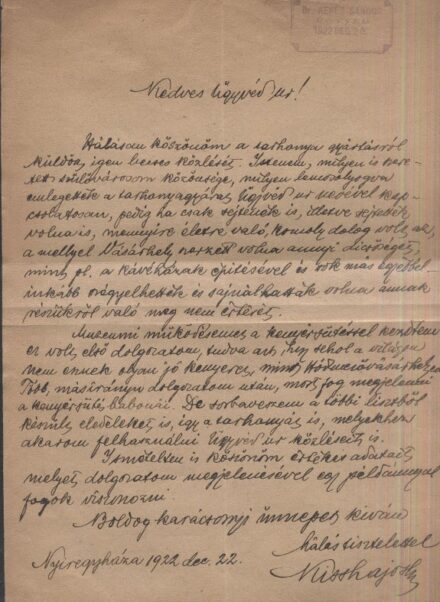 Dr. KÉKEY SÁNDOR
1922 DEC. 24.
Kedves Ügyvéd ur!
Hálásan köszönöm a tarhonya gyártásról
küldött, igen becses közlését. Istenem, milyen is sze-
retett szülővárosom közönsége, milyen lemosolyogva
emlegették a tarhonyagyárat Ügyvéd ur nevével kap-
csolatosan, pedig ha csak sejtenék is, illetve sejtették
volna is, mennyire életre való, komoly dolog volt az,
a mellyel Vásárhely szerzett volna annyi dicsőséget,
mint pl. a kávéházak építésével és sok más egyébbel
inkább szégyelhették és sajnálhatták volna annak
részükről való meg nem értését.
Muzeumi működésemet a kenyérsütéssel kezdtem
ez volt első dolgozatom, tudva azt, hogy sehol a világon
nem esznek olyan jó kenyeret, mint Hódmezővásárhelyen
Több, másirányu dolgozatom után, most fog megjelenni
a kenyérsütés babonái. De sorbaveszem a többi lisztből
készült eledeleket is, igy a tarhonyát is, melyekhez
akarom felhasználni Ügyvéd ur közléseit is.
Ismételten is köszönöm értékes adatait,
melyet dolgozatom megjelenésével egy példánnyal
fogok viszonozni
Boldog karácsonyi ünnepet kiván
hálás tisztelettel
Nyiregyháza 1922 dec. 22.
Kiss Lajos